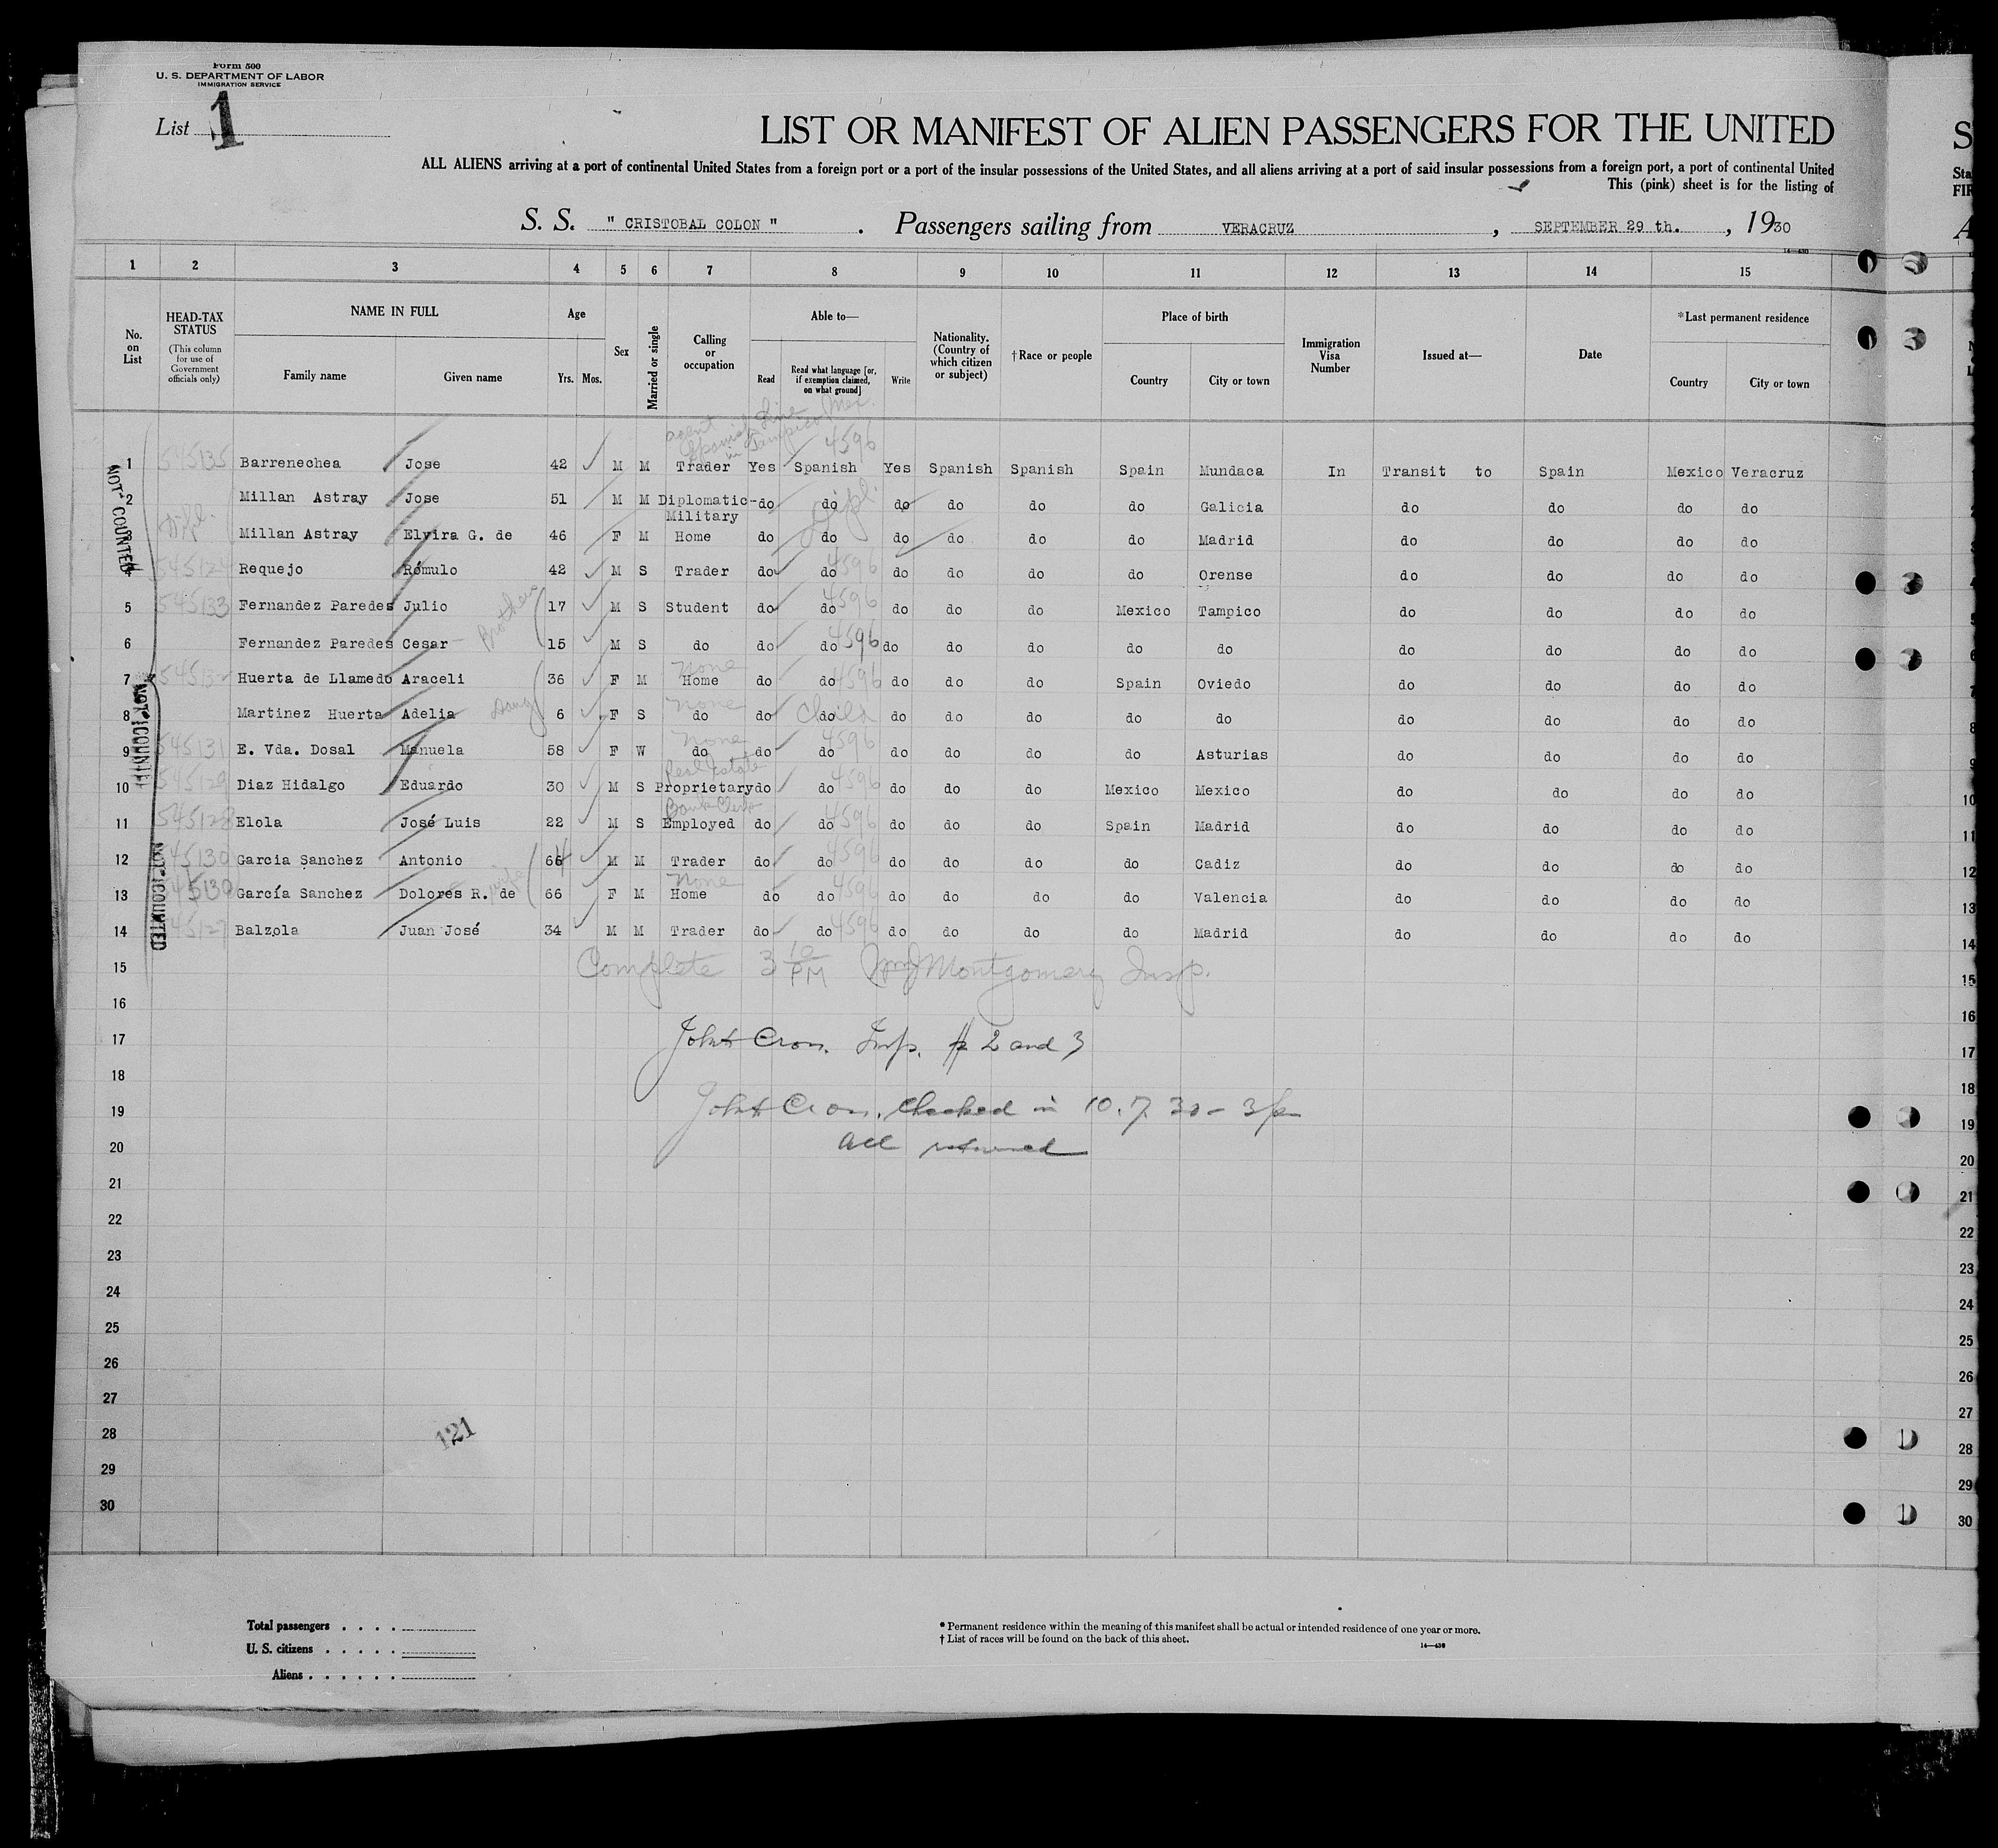 Form 500
U. S. DEPARTMENT OF LABOR
IMMIGRATION SERVICE
List 1
LIST OR MANIFEST OF ALIEN PASSENGERS FOR THE UNITED
S
ALL ALIENS arriving at a port of continental United States from a foreign port or a port of the insular possessions of the United States, and all aliens arriving at a port of said insular possessions from a foreign port, a port of continental United
Sta
This (pink) sheet is for the listing of
FIR
S. S. " CRISTOBAL COLON " . Passengers sailing from VERACRUZ , SEPTEMBER 29 th. , 1930
A
14—430
1 2 3 4 5 6 7 8 9 10 11 12 13 14 15
No. on List
HEAD-TAX STATUS (This column for use of Government officials only)
NAME IN FULL
Family name Given name
Age
Yrs. Mos.
Sex
Married or single
Calling or occupation
Able to—
Read
Read what language [or, if exemption claimed, on what ground]
Write
Nationality. (Country of which citizen or subject)
†Race or people
Place of birth
Country City or town
Immigration Visa Number
Issued at—
Date
*Last permanent residence
Country City or town
agent Spanish Line in Tampico Mex.
1 545135 Barrenechea Jose 42 M M Trader Yes Spanish 4596 Yes Spanish Spanish Spain Mundaca In Transit to Spain Mexico Veracruz
2 Millan Astray Jose 51 M M Diplomatic-Military do do Dipl. do do do do Galicia do do do do
3 Dipl. Millan Astray Elvira G. de 46 F M Home do do do do do do Madrid do do do do
4 Requejo Rómulo 42 M S Trader do do 4596 do do do do Orense do do do do
5 545133 Fernandez Paredes Julio 17 M S Student do do 4596 do do do Mexico Tampico do do do do
Brothers
6 Fernandez Paredes Cesar 15 M S do do do 4596 do do do do do do do do do
None
7 Huerta de Llamedo Araceli 36 F M Home do do 4596 do do do Spain Oviedo do do do do
None
8 Martinez Huerta Adelia Daug 6 F S do do do Child do do do do do do do do do
None
9 545131 E. Vda. Dosal Manuela 58 F W do do do 4596 do do do do Asturias do do do do
Real Estate
10 545129 Diaz Hidalgo Eduardo 30 M S Proprietary do do 4596 do do do Mexico Mexico do do do do
Bank Clerk
11 545128 Elola José Luis 22 M S Employed do do 4596 do do do Spain Madrid do do do do
12 545130 Garcia Sanchez Antonio 66 M M Trader do do 4596 do do do do Cadiz do do do do
None
13 545130 García Sanchez Dolores R. de wife 66 F M Home do do 4596 do do do do Valencia do do do do
14 545127 Balzola Juan José 34 M M Trader do do 4596 do do do do Madrid do do do do
NOT COUNTED
NOT COUNTED
NOT COUNTED
15 Complete 3 10 PM Montgomery Insp.
16
17 John Cron. Insp. # 2 and 3
18
19 John Cron. Checked in 10.7.30 - 3 pm
20 all returned
21
22
23
24
25
26
27
28 121
29
30
Total passengers . . . .
U. S. citizens . . . . .
Aliens . . . . . .
* Permanent residence within the meaning of this manifest shall be actual or intended residence of one year or more.
† List of races will be found on the back of this sheet.
14—430